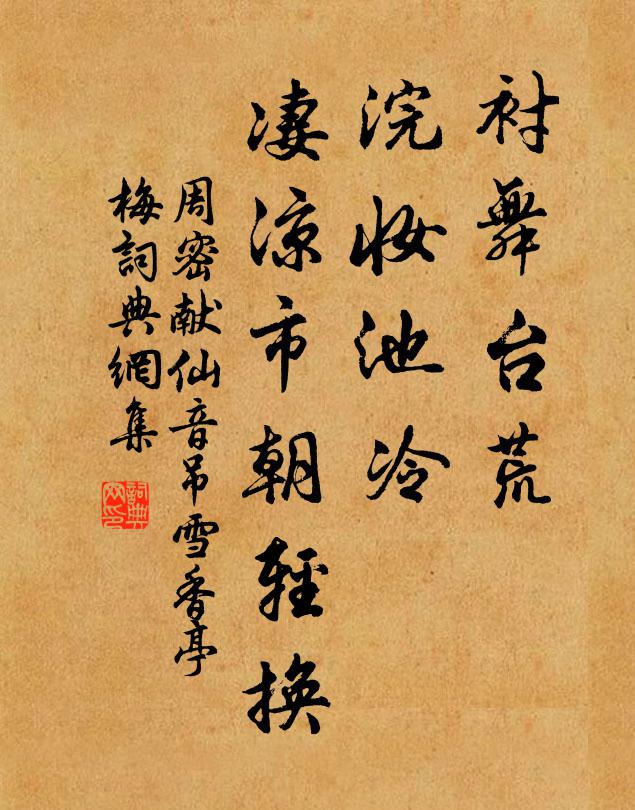 衬舞台荒
浣妆池冷
凄凉市朝轻换
周密献仙音吊雪香亭
梅詞典網集
詞典